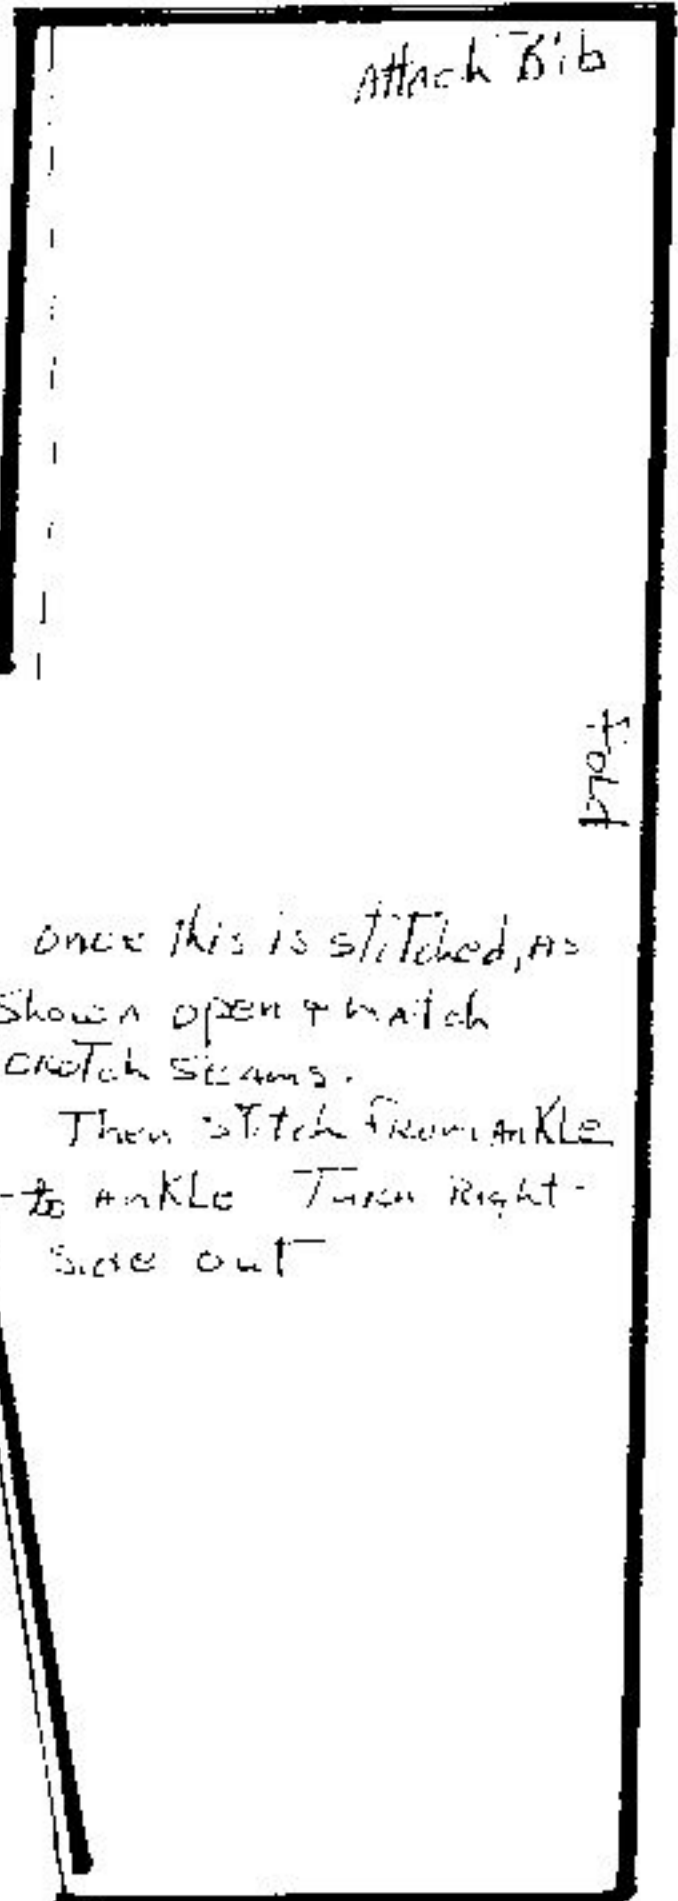 Attach Bib
fold
once this is stitched, as
Shown open & match
crotch seams.
Then stitch from ankle
to ankle Turn Right
side out